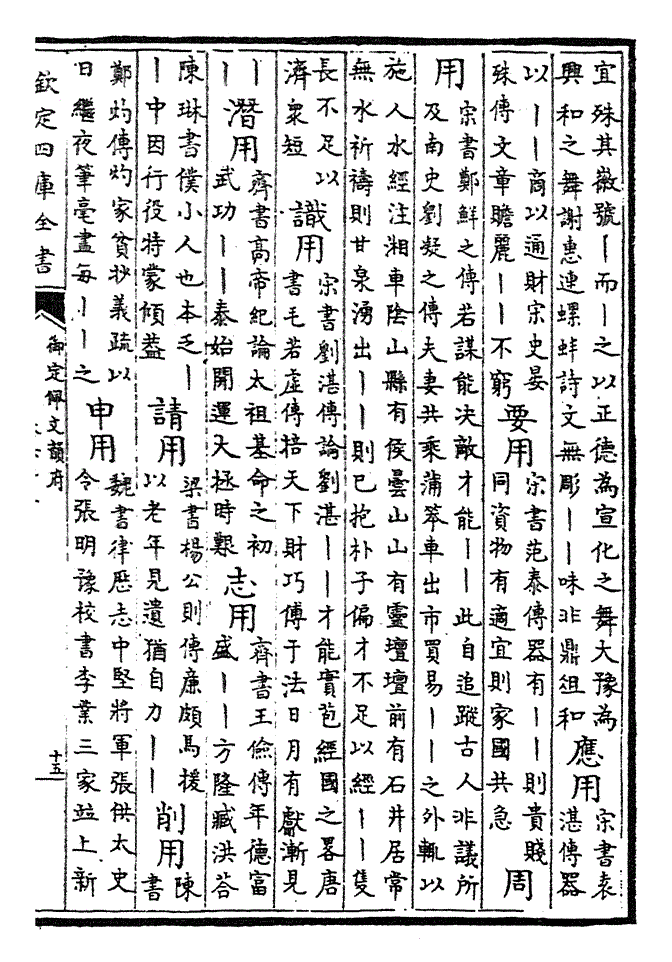 宜殊其徽號丨而丨之以正德為宣化之舞大豫為
興和之舞謝惠連螺蚌詩文無彫丨丨味非鼎俎和
應用
宋書袁
湛傳器
以丨丨商以通財宋史晏
殊傳文章贍麗丨丨不窮
要用
宋書范泰傳器有丨丨則貴賤
同資物有適宜則家國共急
周
用
宋書鄭鮮之傳若謀能决敵才能丨丨此自追蹤古人非議所
及南史劉凝之傳夫妻共乘蒲笨車出市買易丨丨之外輒以
施人水經注湘車陰山縣有侯曇山山有靈壇壇前有石井居常
無水祈禱則甘泉湧出丨丨則已抱朴子偏才不足以經丨丨隻
長不足以
濟衆短
識用
宋書劉湛傳論劉湛丨丨才能實苞經國之畧唐
書毛若虛傳掊天下財巧傅于法日月有獻漸見
丨
丨
潛用
齊書高帝紀論太祖基命之初
武功丨丨泰始開運大拯時艱
志用
齊書王儉傳年德富
盛丨丨方隆臧洪荅
陳琳書僕小人也本乏丨
丨中因行役特蒙傾蓋
請用
梁書楊公則傳廉頗馬援
以老年見遺猶自力丨丨
削用
陳
書
鄭灼傳灼家貧抄義疏以
日繼夜筆毫盡每丨丨之
申用
魏書律歷志中堅將軍張供太史
令張明豫校書李業三家並上新
欽定四庫全書
御定佩文韻府
十五